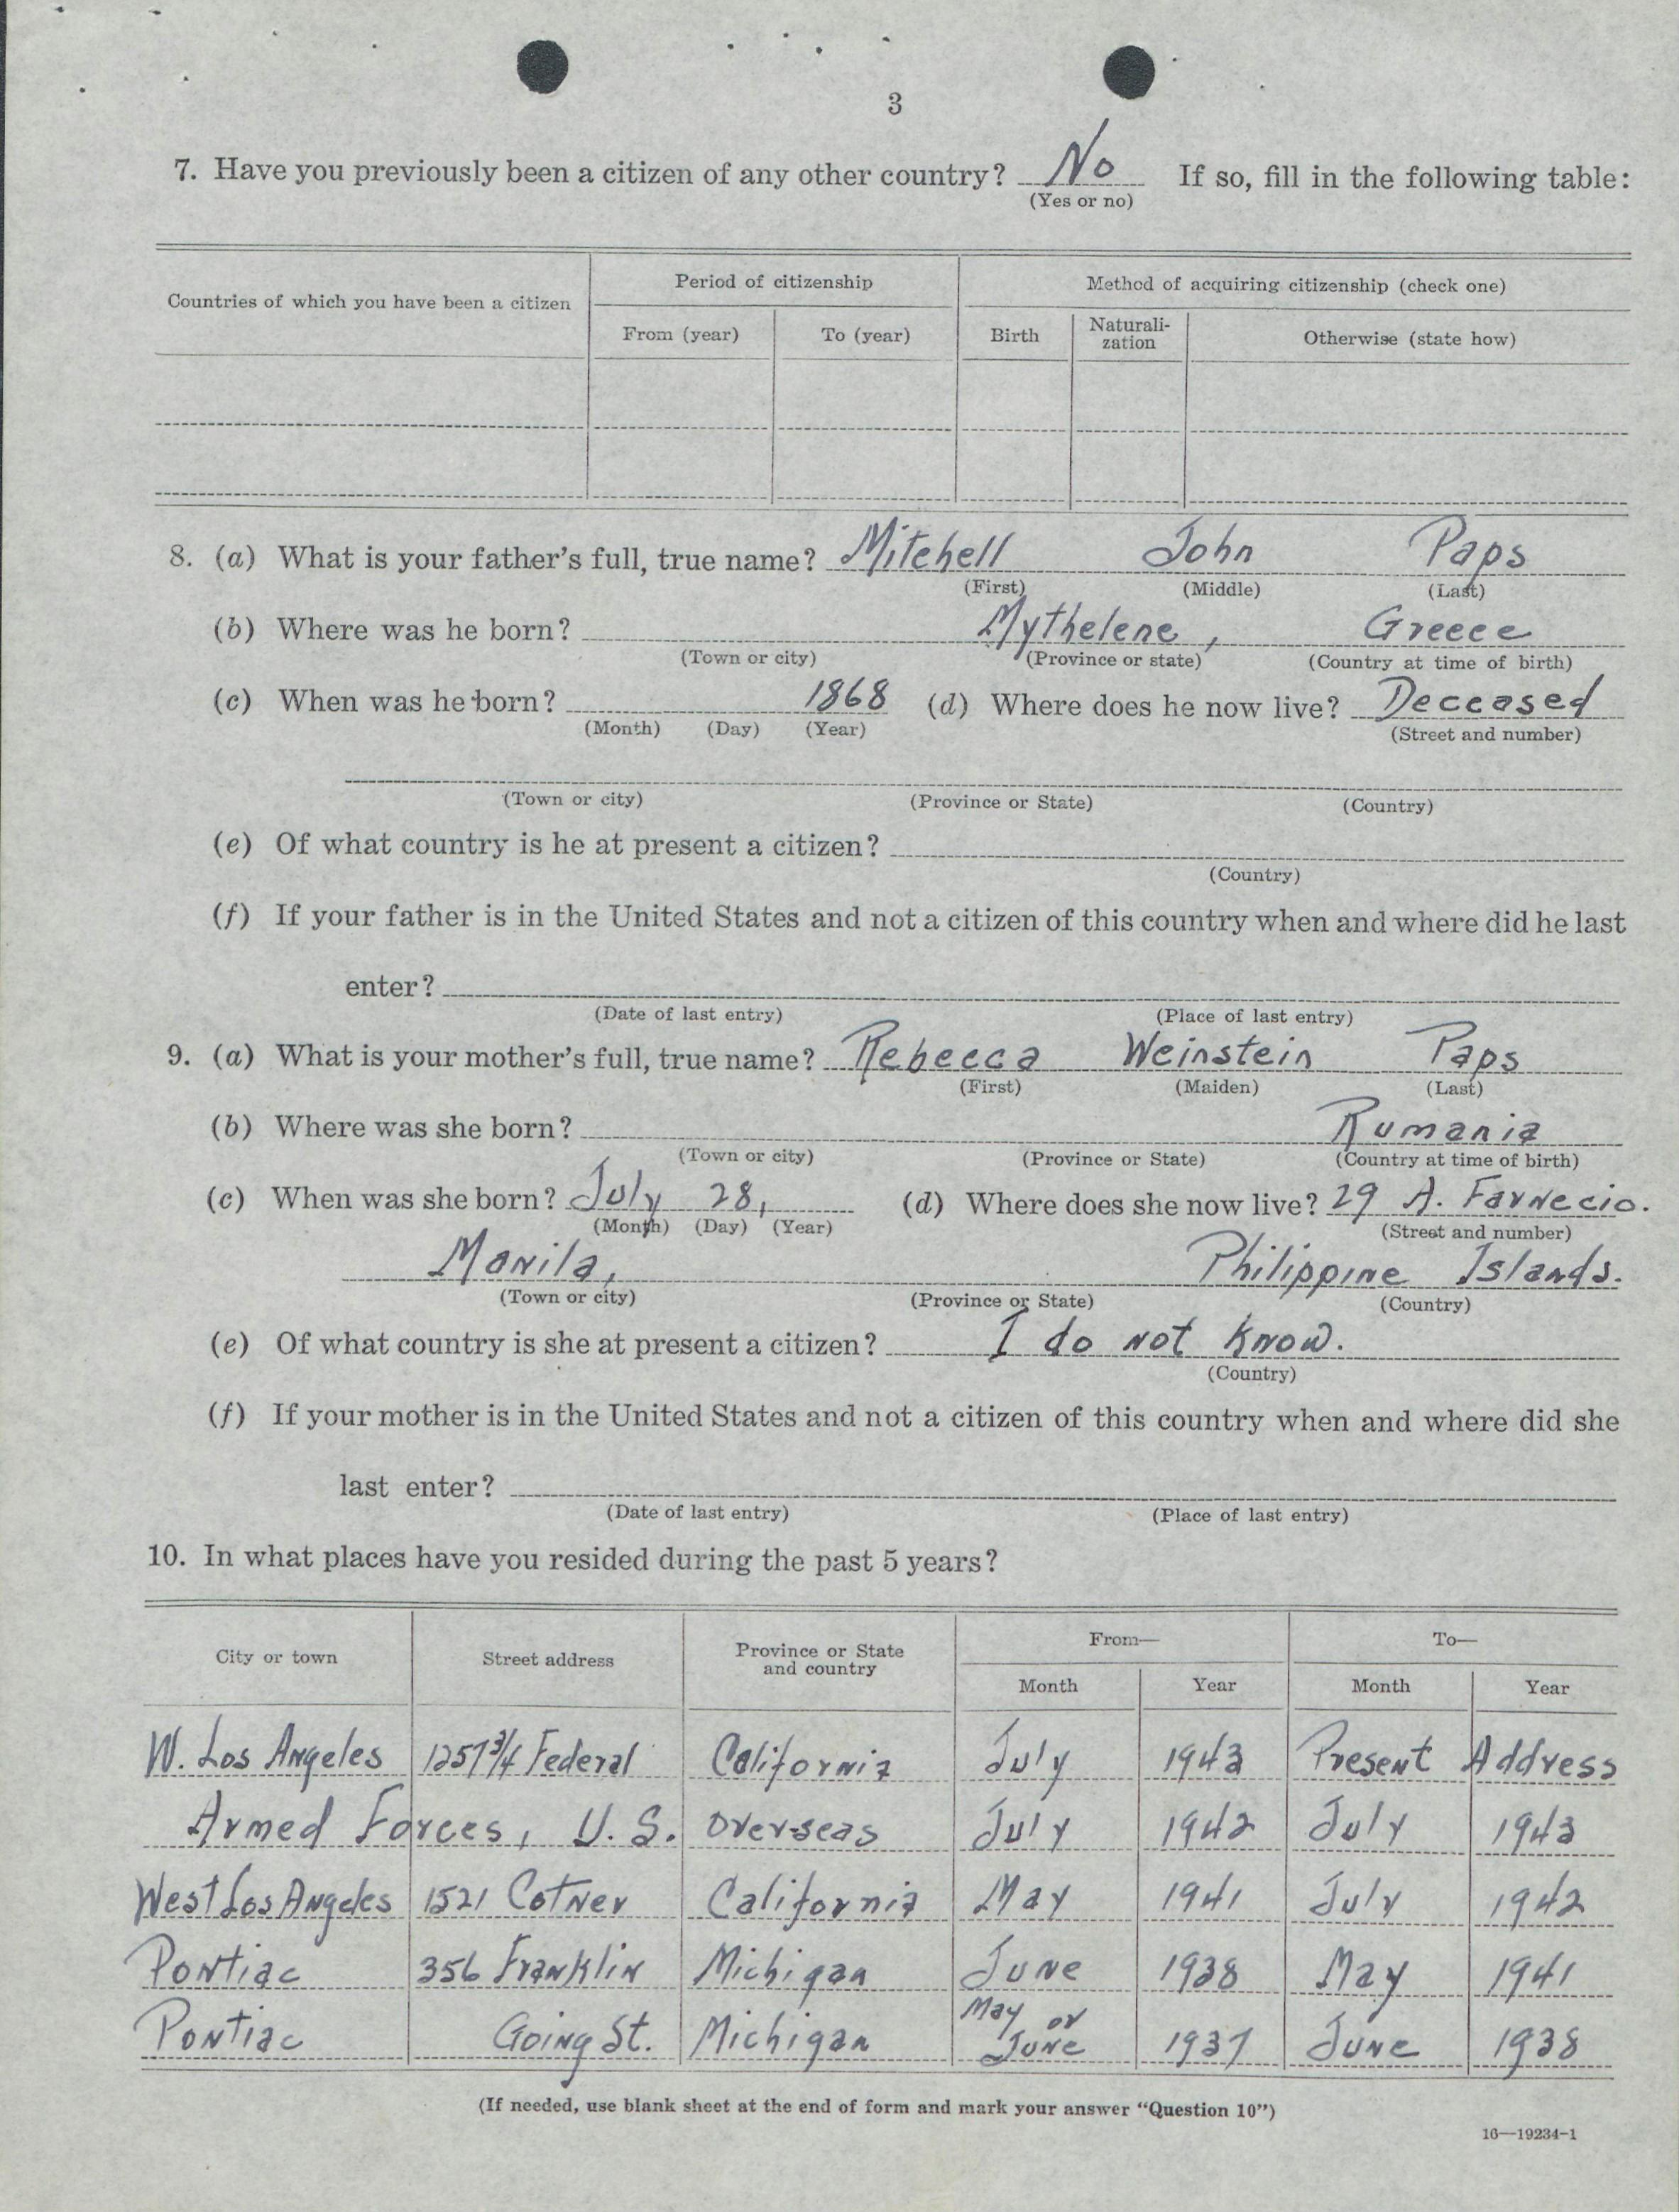 3
7. Have you previously been a citizen of any other country? No If so, fill in the following table:
(Yes or no)
Countries of which you have been a citizen Period of citizenship Method of acquiring citizenship (check one)
From (year) To (year) Birth Naturali-zation Otherwise (state how)
8. (a) What is your father's full, true name? Mitchell John Paps
(First) (Middle) (Last)
(b) Where was he born? Mythelene, Greece
(Town or city) (Province or state) (Country at time of birth)
(c) When was he born? 1868 (d) Where does he now live? Deceased
(Month) (Day) (Year) (Street and number)
(Town or city) (Province or State) (Country)
(e) Of what country is he at present a citizen?
(Country)
(f) If your father is in the United States and not a citizen of this country when and where did he last
enter?
(Date of last entry) (Place of last entry)
9. (a) What is your mother's full, true name? Rebecca Weinstein Paps
(First) (Maiden) (Last)
(b) Where was she born? Rumania
(Town or city) (Province or State) (Country at time of birth)
(c) When was she born? July 28, (d) Where does she now live? 29 A. Farnecio.
(Month) (Day) (Year) (Street and number)
Manila, Philippine Islands.
(Town or city) (Province or State) (Country)
(e) Of what country is she at present a citizen? I do not know.
(Country)
(f) If your mother is in the United States and not a citizen of this country when and where did she
last enter?
(Date of last entry) (Place of last entry)
10. In what places have you resided during the past 5 years?
City or town Street address Province or State and country From— To—
Month Year Month Year
W. Los Angeles 1257 3/4 Federal California July 1943 Present Address
Armed Forces, U.S. Over-seas July 1942 July 1943
West Los Angeles 1521 Cotner California May 1941 July 1942
Pontiac 356 Franklin Michigan June 1938 May 1941
Pontiac Going St. Michigan May or June 1937 June 1938
(If needed, use blank sheet at the end of form and mark your answer "Question 10")
16—19234-1